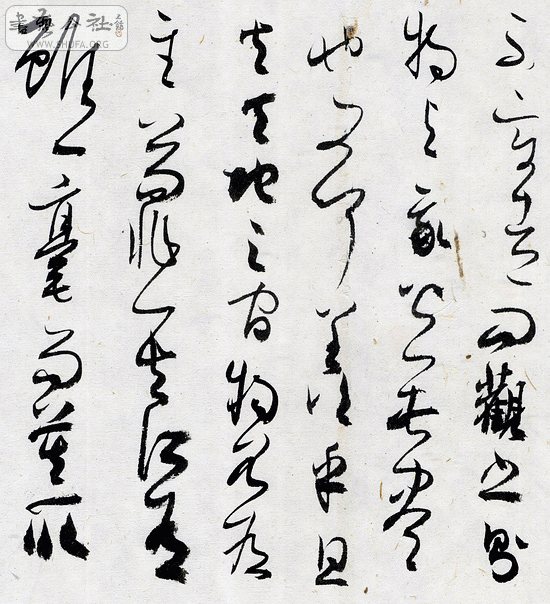 不變者而觀之則
物與我皆無盡
也又何羨乎且
夫天地之間物各有
主苟非吾之所有
雖一毫而莫取
書法公社
WWW.SHUFA.ORG